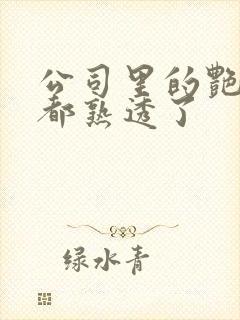 公司里的艷
都熟透了
绿水青